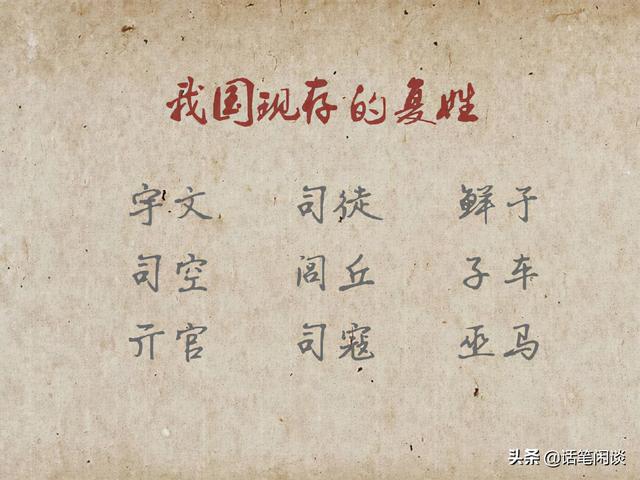 我国现存的复姓
宇文 司徒 鲜于
司空 闾丘 子车
亓官 司寇 巫马
头条 @话笔闲谈